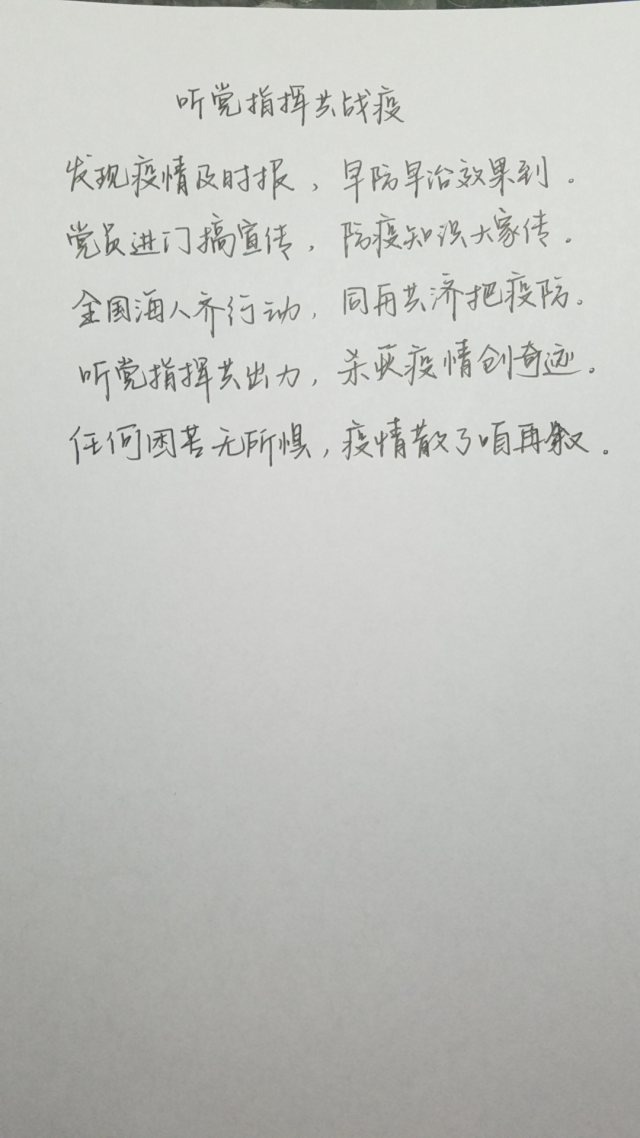 听党指挥共战疫
发现疫情及时报，早防早治效果到。
党员进门搞宣传，防疫知识大家传。
全国海人齐行动，同舟共济把疫防。
听党指挥共出力，杀灭疫情创奇迹。
任何困苦无所惧，疫情散了咱再叙。